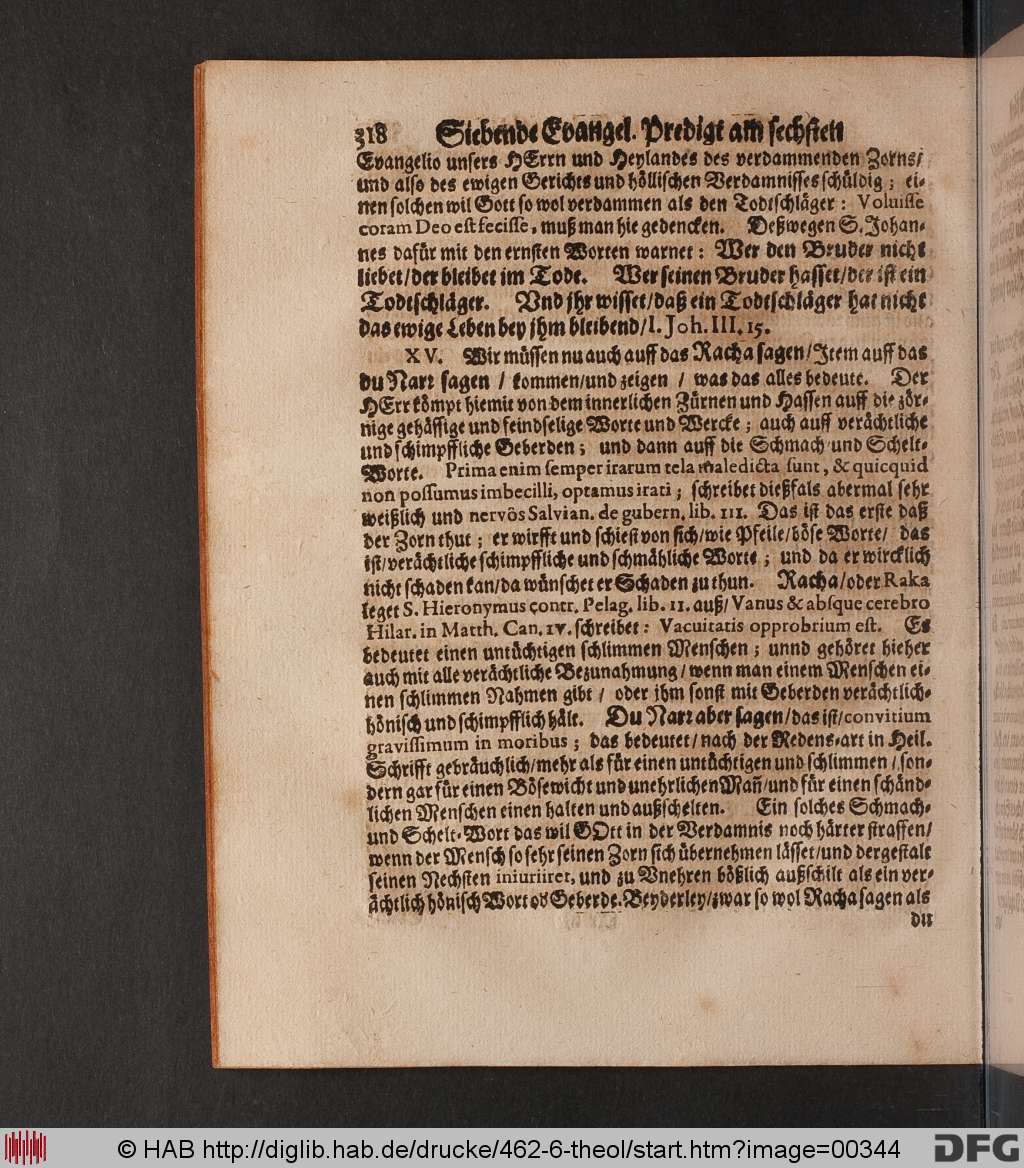 318 Siebende Evangel. Predigt am sechsten
Evangelio unsers HErrn und Heylandes des verdammenden Zorns/
und also des ewigen Gerichts und höllischen Verdamnisses schüldig; ei-
nen solchen wil Gott so wol verdammen als den Todtschläger: Voluisse
coram Deo est fecisse, muß man hie gedencken. Deßwegen S. Johan-
nes dafür mit den ernsten Worten warnet: Wer den Bruder nicht
liebet/der bleibet im Tode. Wer seinen Bruder hasset/der ist ein
Todtschläger. Vnd jhr wisset/daß ein Todtschläger hat nicht
das ewige Leben bey jhm bleibend/I. Joh. III. 15.
XV. Wir müssen nu auch auff das Racha sagen/Item auff das
du Narr sagen / kommen/und zeigen / was das alles bedeute. Der
HErr kömpt hiemit von dem innerlichen Zürnen und Hassen auff die zör-
nige gehässige und feindselige Worte und Wercke; auch auff verächtliche
und schimpffliche Geberden; und dann auff die Schmach und Schelt-
Worte. Prima enim semper irarum tela maledicta sunt, & quicquid
non possumus imbecilli, optamus irati; schreibet dießfals abermal sehr
weißlich und nervôs Salvian. de gubern. lib. III. Das ist das erste daß
der Zorn thut; er wirfft und schiest von sich/wie Pfeile/böse Worte/ das
ist/verächtliche schimpffliche und schmähliche Worte; und da er wircklich
nicht schaden kan/da wünschet er Schaden zu thun. Racha/oder Raka
leget S. Hieronymus contr. Pelag. lib. II. auß/Vanus & absque cerebro
Hilar. in Matth. Can. IV. schreibet: Vacuitatis opprobrium est. Es
bedeutet einen untüchtigen schlimmen Menschen; unnd gehöret hieher
auch mit alle verächtliche Bezunahmung/wenn man einem Menschen ei-
nen schlimmen Nahmen gibt / oder jhm sonst mit Geberden verächtlich-
hönisch und schimpfflich hält. Du Narr aber sagen/das ist/convitium
gravissimum in moribus; das bedeutet/nach der Redens-art in Heil.
Schrifft gebräuchlich/mehr als für einen untüchtigen und schlimmen/son-
dern gar für einen Bösewicht und unehrlichen Mañ/und für einen schänd-
lichen Menschen einen halten und außschelten. Ein solches Schmach-
und Schelt-Wort das wil GOtt in der Verdamnis noch härter straffen/
wenn der Mensch so sehr seinen Zorn sich übernehmen lässet/und dergestalt
seinen Nechsten iniuriiret, und zu Vnehren bößlich außschilt als ein ver-
ächtlich hönisch Wort od Geberde. Beyderley/zwar so wol Racha sagen als
du
© HAB http://diglib.hab.de/drucke/462-6-theol/start.htm?image=00344
DFG